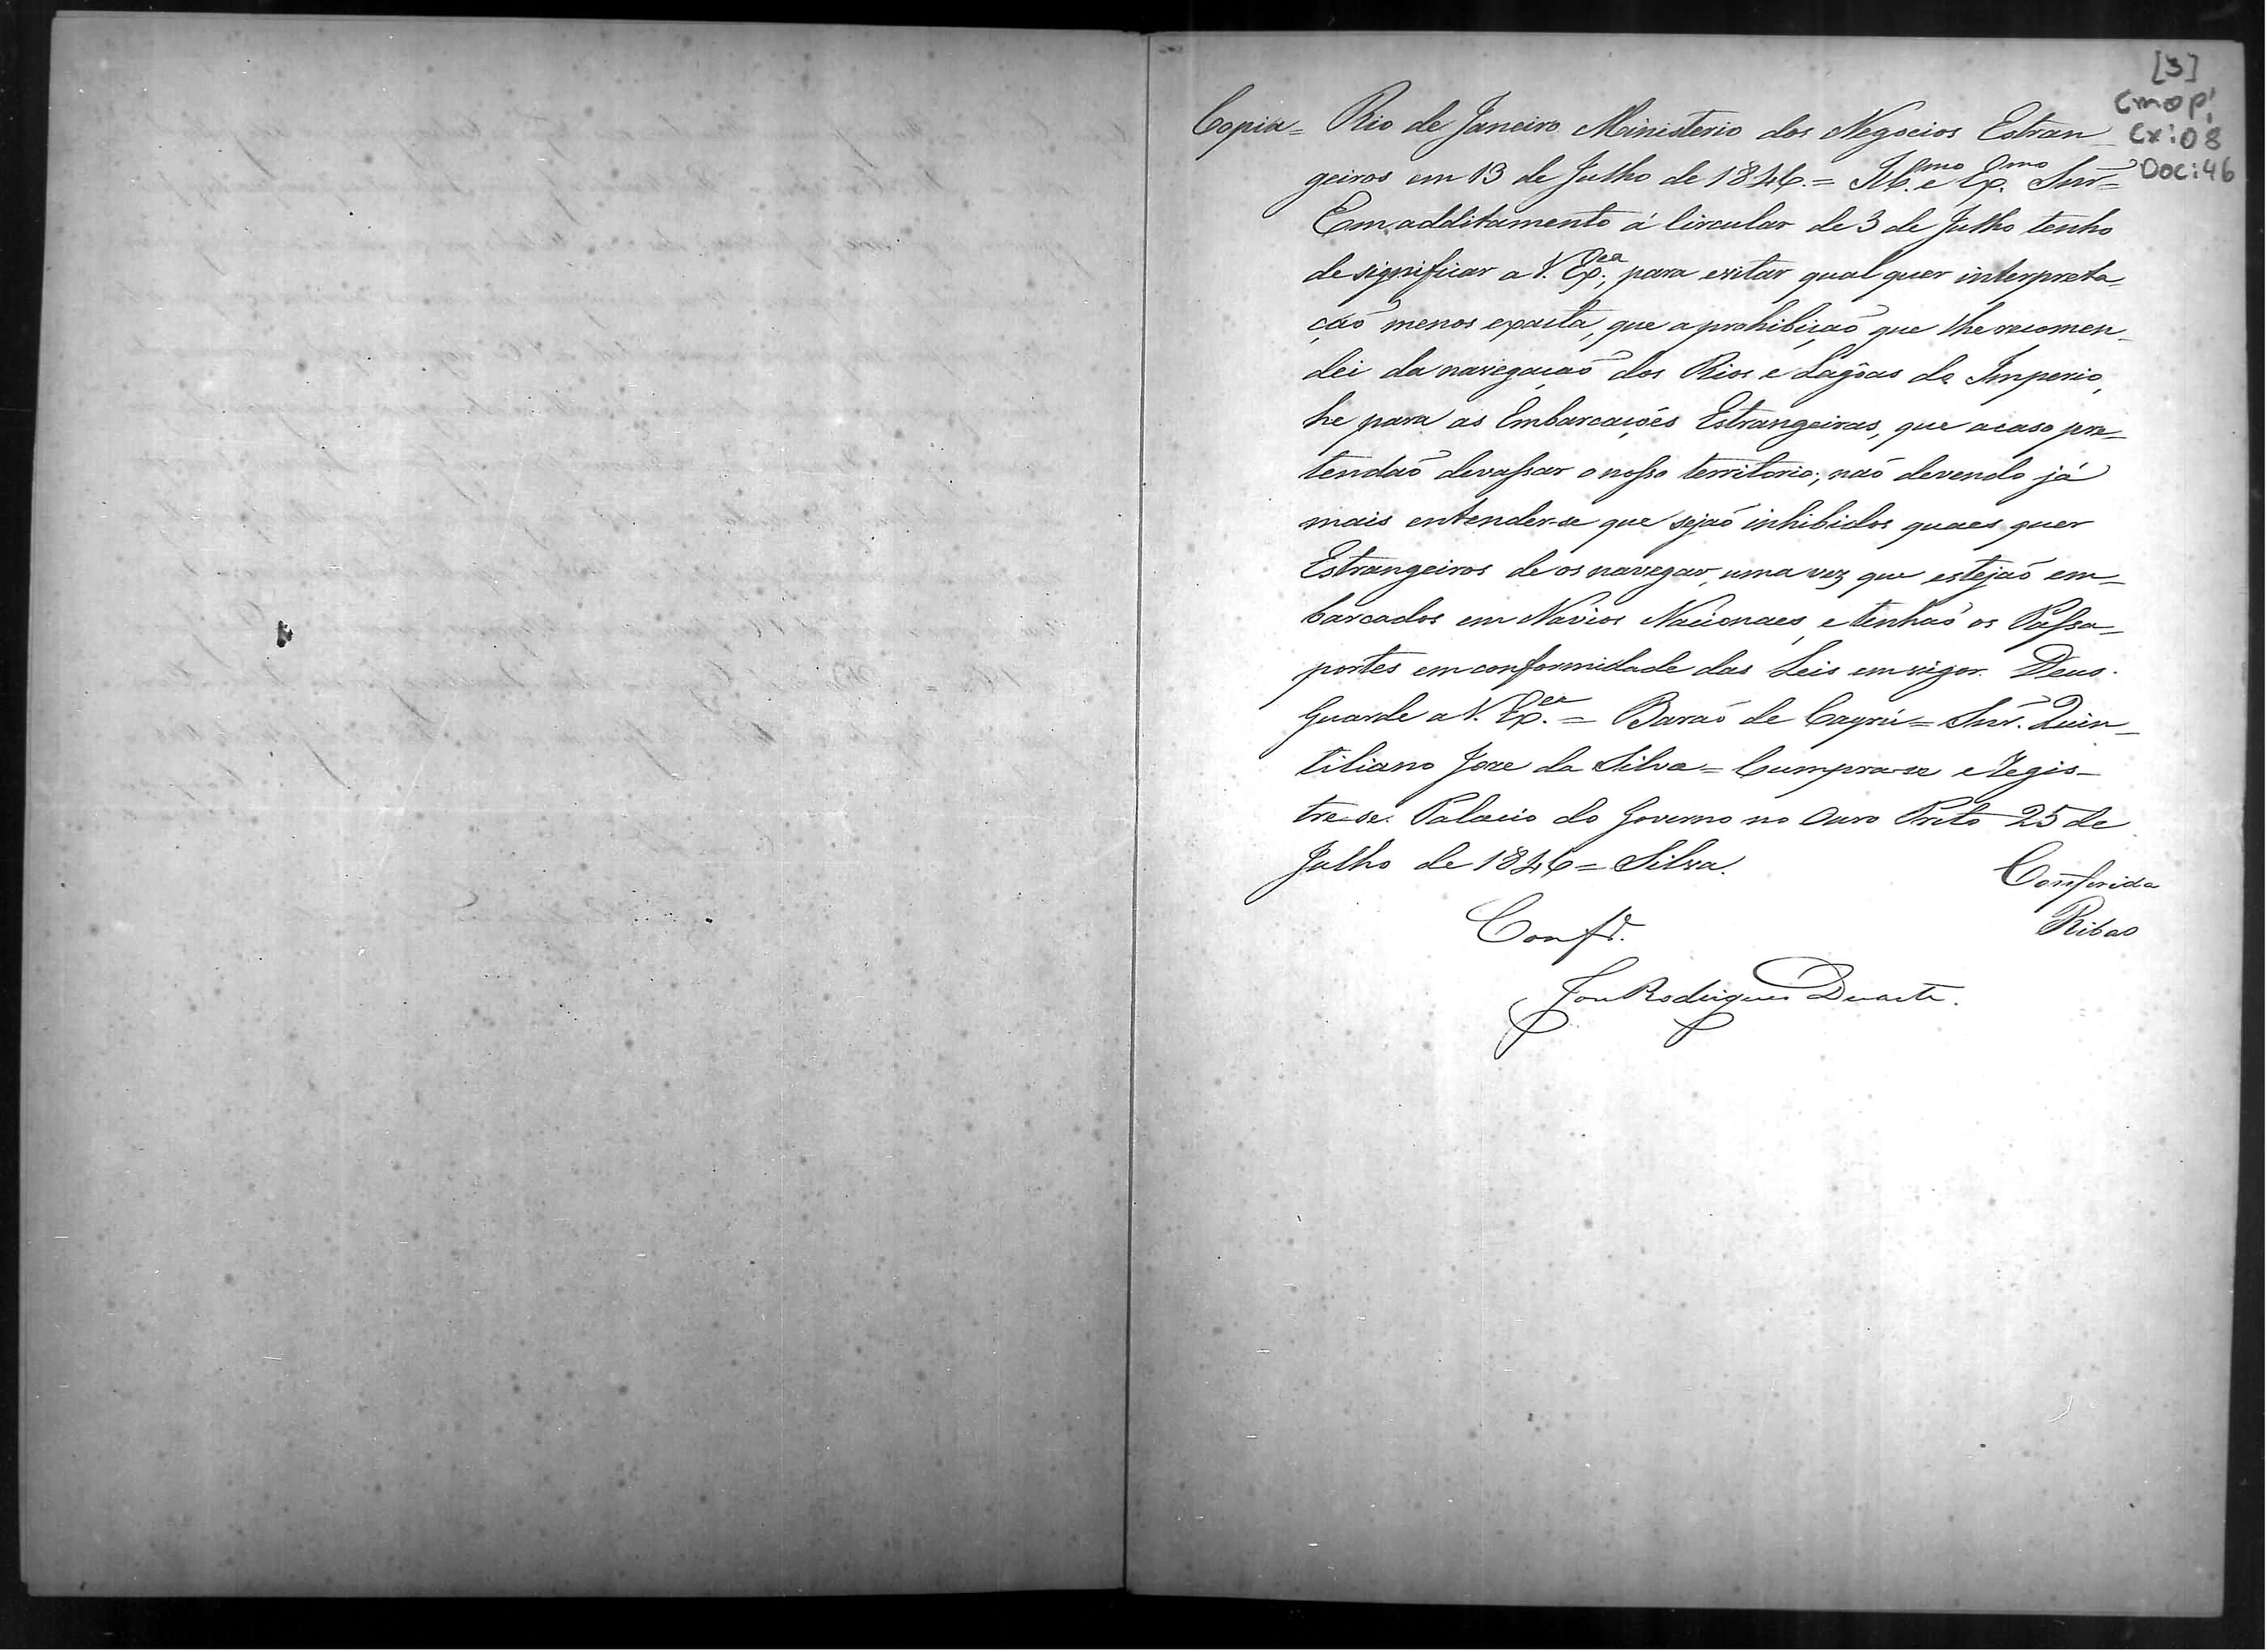 [3]
CMOP!
CX:08
DOC:46
Copia = Rio de Janeiro Ministerio dos Negocios Estran_
geiros em 13 de Julho de 1846. = Ill.mo e Ex.mo Snr =
Em additamento á Circular de 3 de Julho tenho
de significar a V. Ex.cia, para evitar qual quer interpreta_
çaõ menos exacta, que a prohibiçaõ que lhe recomen_
dei da navegaçaõ dos Rios e Lagôas do Imperio,
he para as Embarcaçoẽs Estrangeiras, que acaso pre_
tendaõ devassar o nosso territorio; naõ devendo já
mais entender-se que sejaõ inhibidos quaes quer
Estrangeiros de os navegar, uma vez que estejaõ em_
barcados em Navios Nacionaes, e tenhaõ os Passa_
portes em conformidade das Leis em vigor. Deos
Guarde a V. Ex.cia = Baraõ de Cayrú = Snr. Quin_
tiliano Joze da Silva = Cumpra-se e Regis_
tre-se. Palacio do Governo no Ouro Preto 25 de
Julho de 1846 = Silva.
Conferida
Ribas
Conf.e
Joze Rodrigues Duarte.